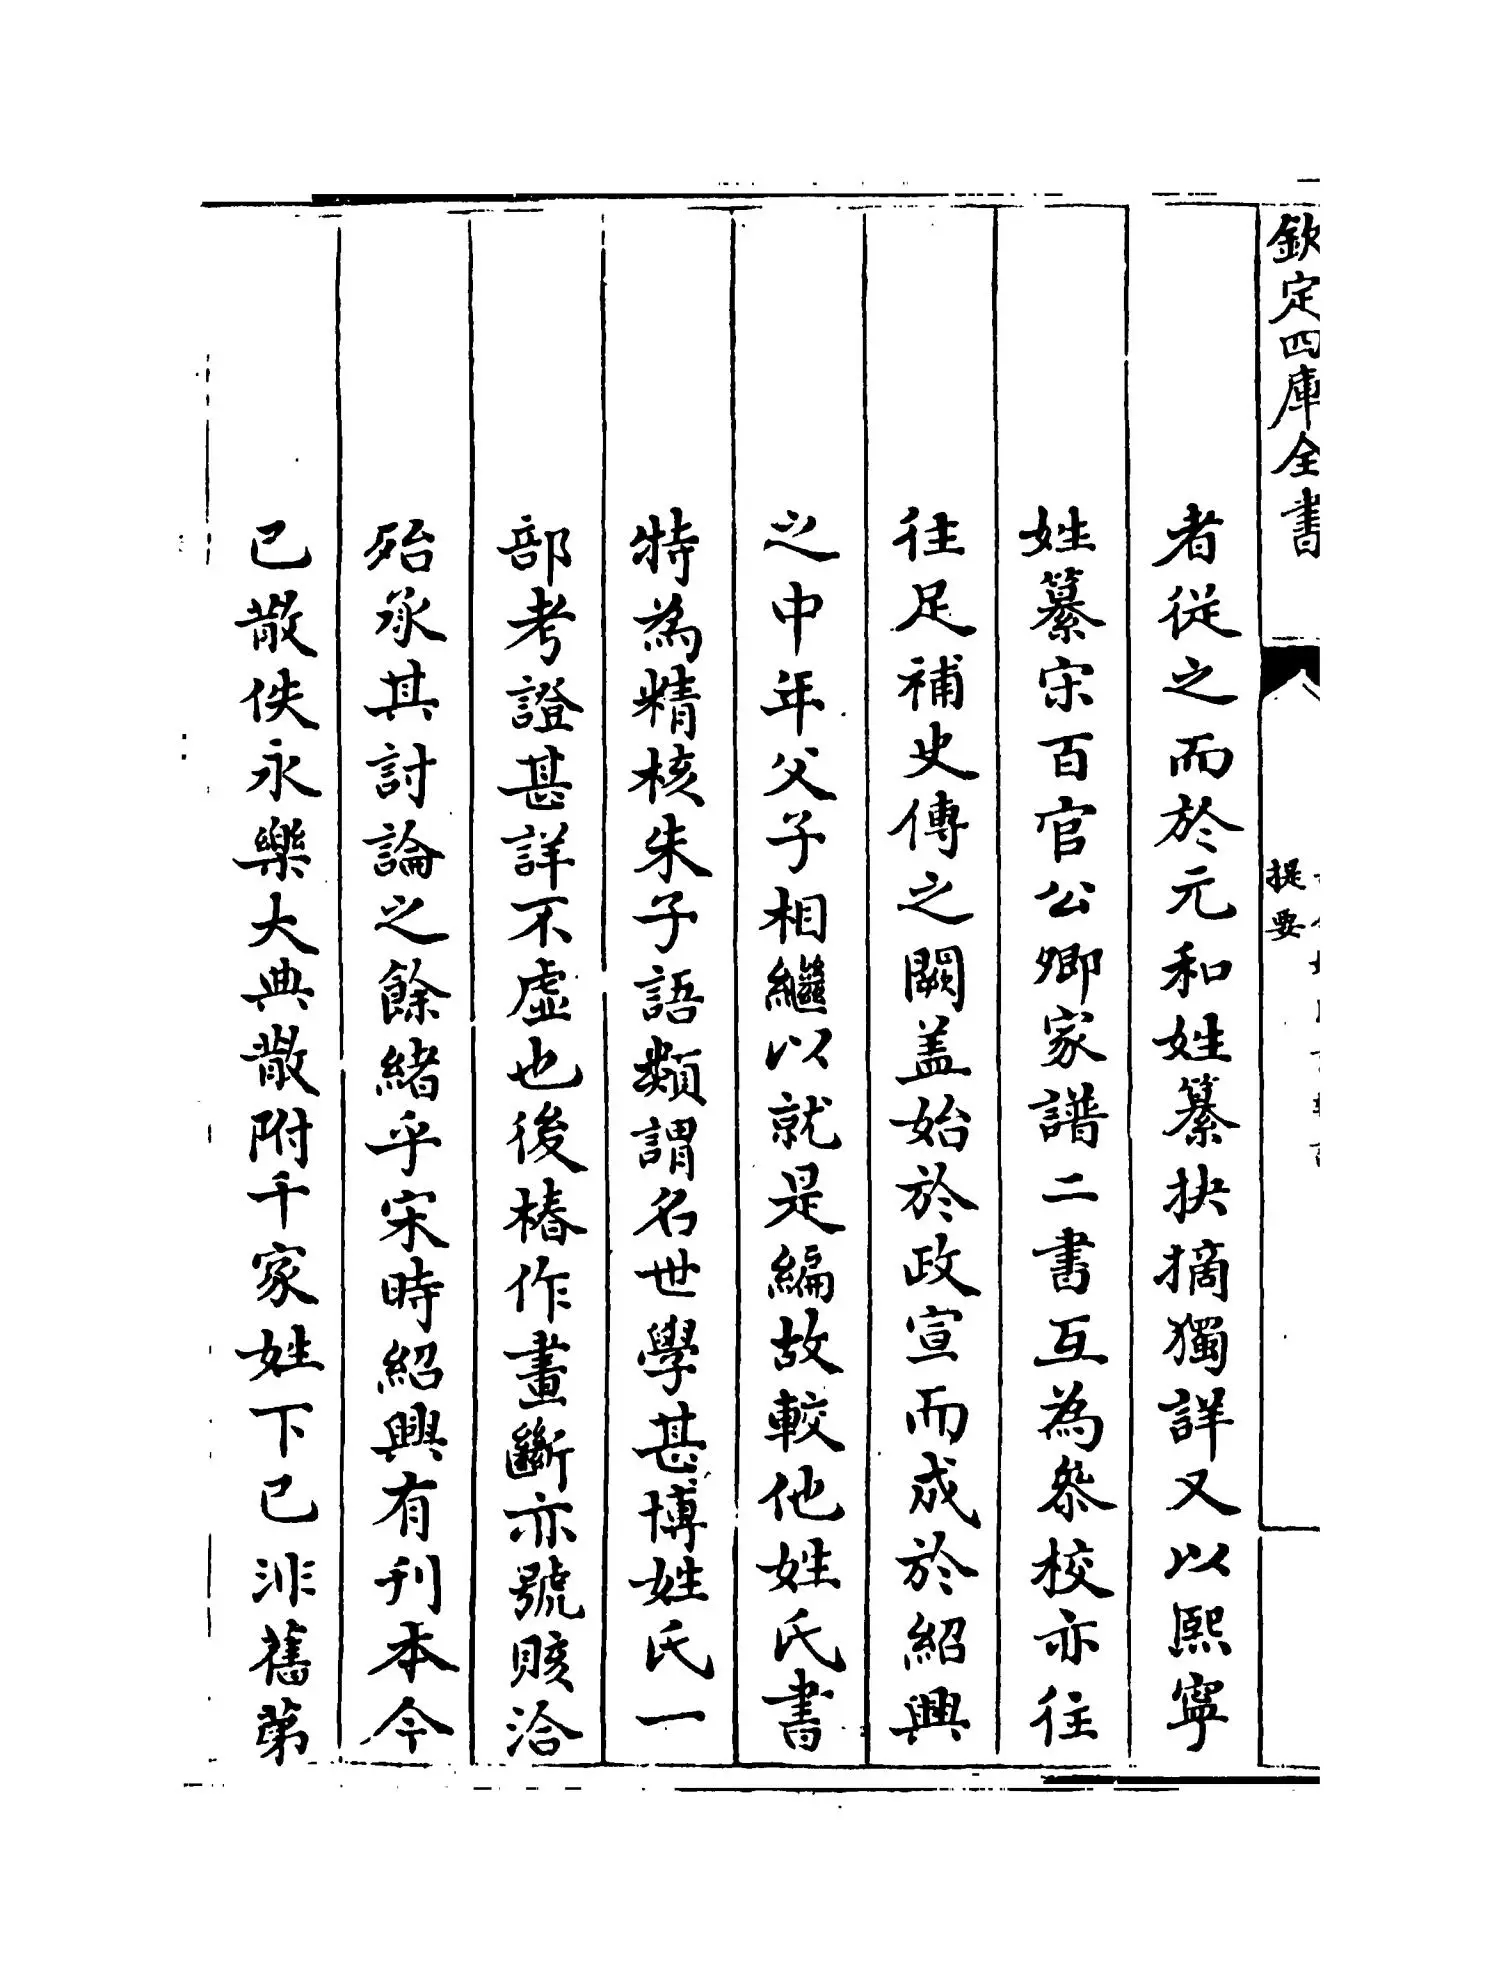 欽定四庫全書
提要
者從之而於元和姓纂抉摘獨詳又以熙寧
姓纂宋百官公卿家譜二書互為叅校亦往
往足補史傳之闕盖始於政宣而成於紹興
之中年父子相繼以就是編故較他姓氏書
特為精核朱子語類謂名世學甚博姓氏一
部考證甚詳不虚也後椿作畫斷亦號賅洽
殆承其討論之餘緒乎宋時紹興有刋本今
已散佚永樂大典散附千家姓下已非舊第